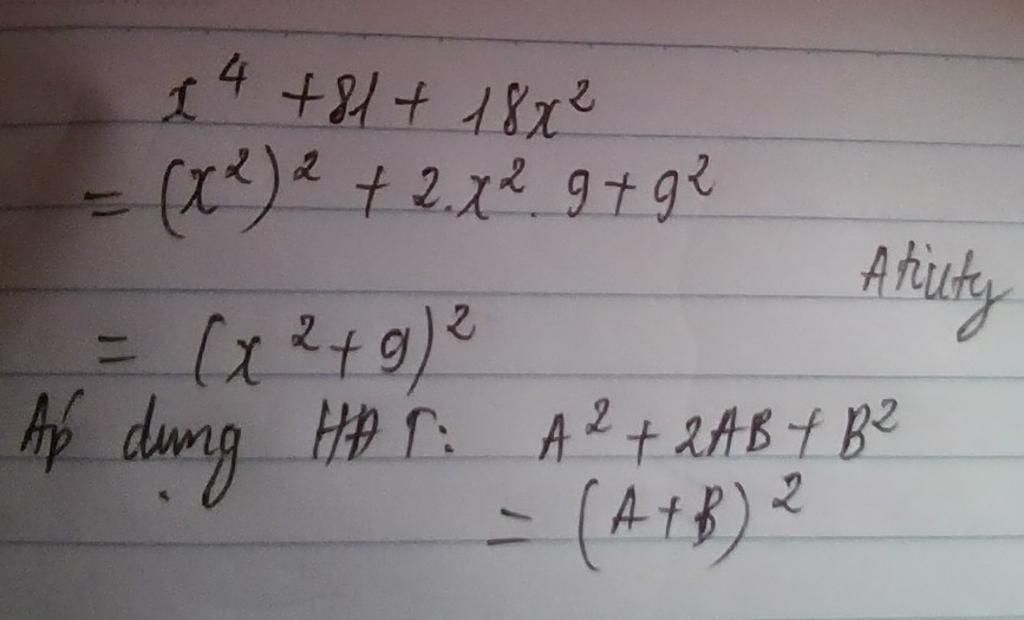 x⁴ + 81 + 18x²
= (x²)² + 2.x². 9 + 9²
= (x² + 9)²
Áp dụng HĐT: A² + 2AB + B²
= (A + B)²